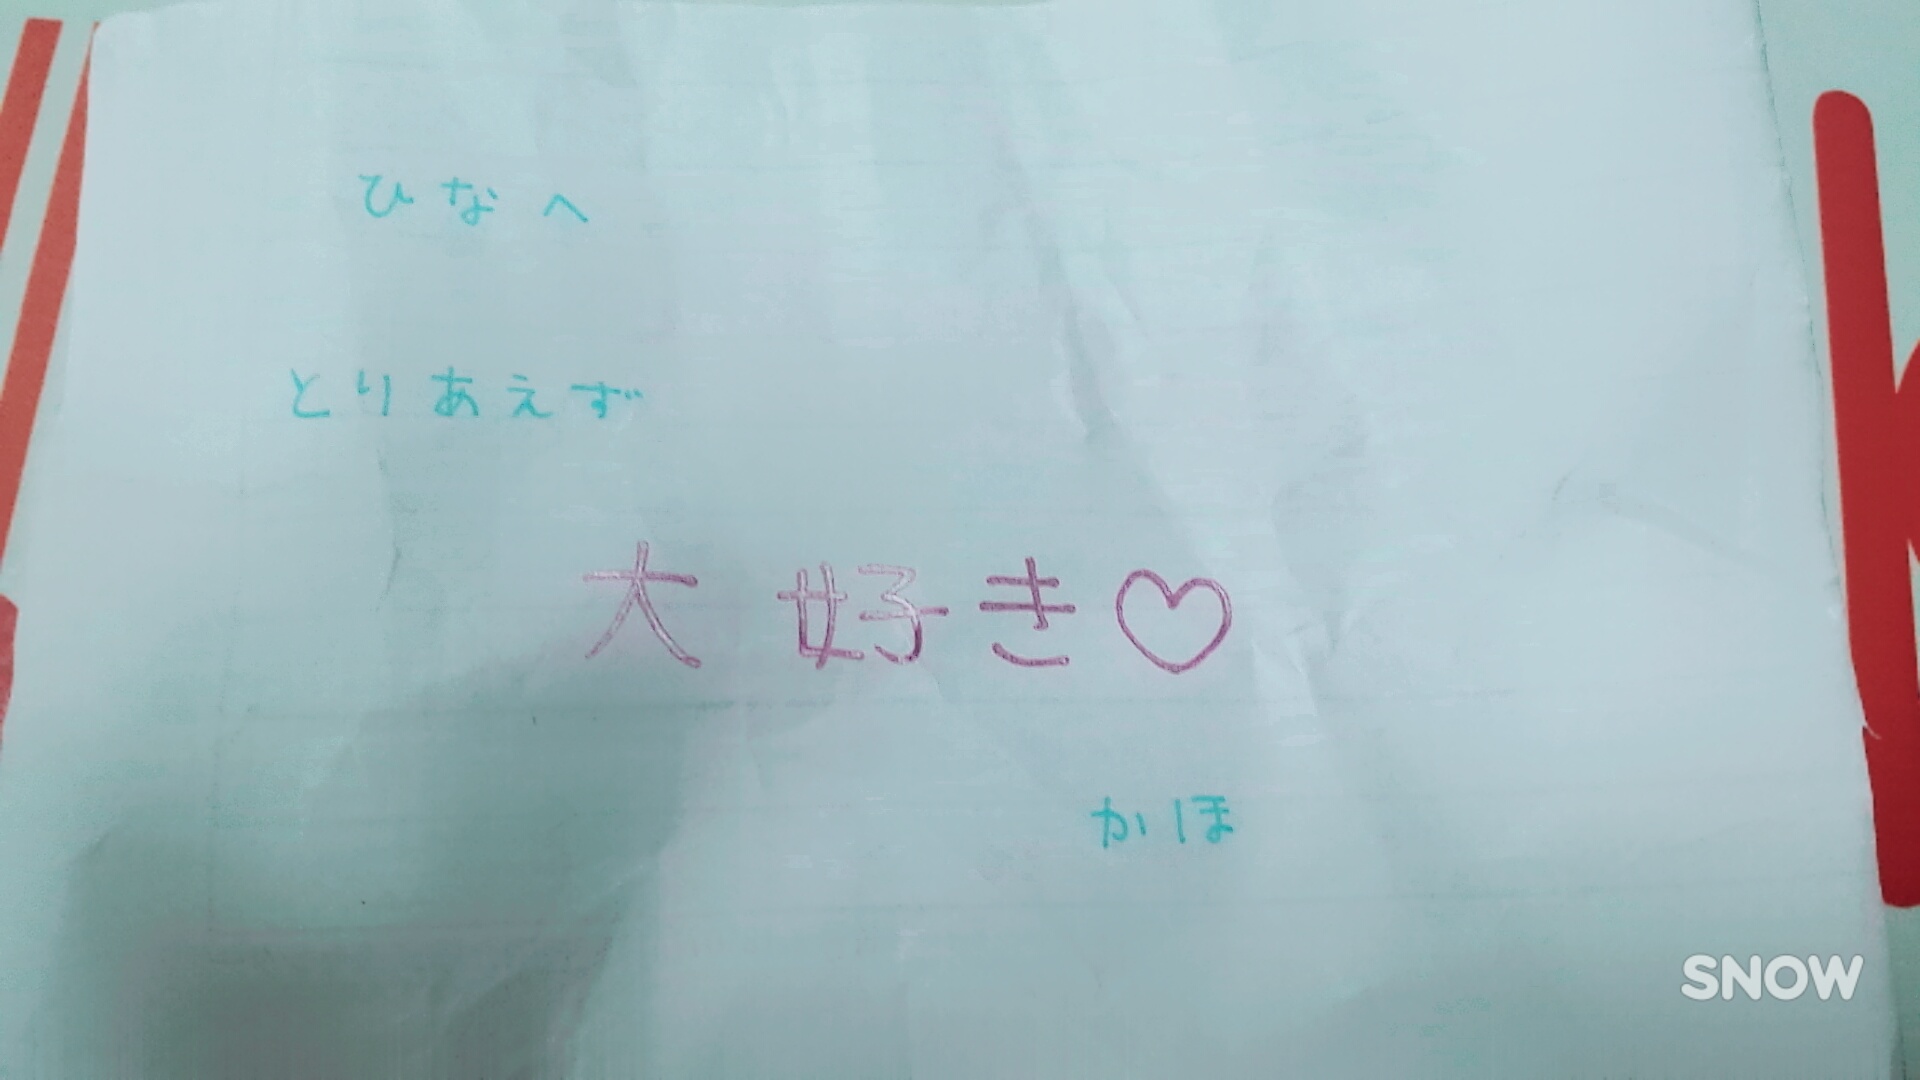 ひなへ
とりあえず
大好き♡
かほ
SNOW